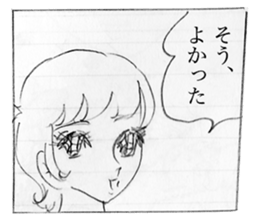 そう、
よかった